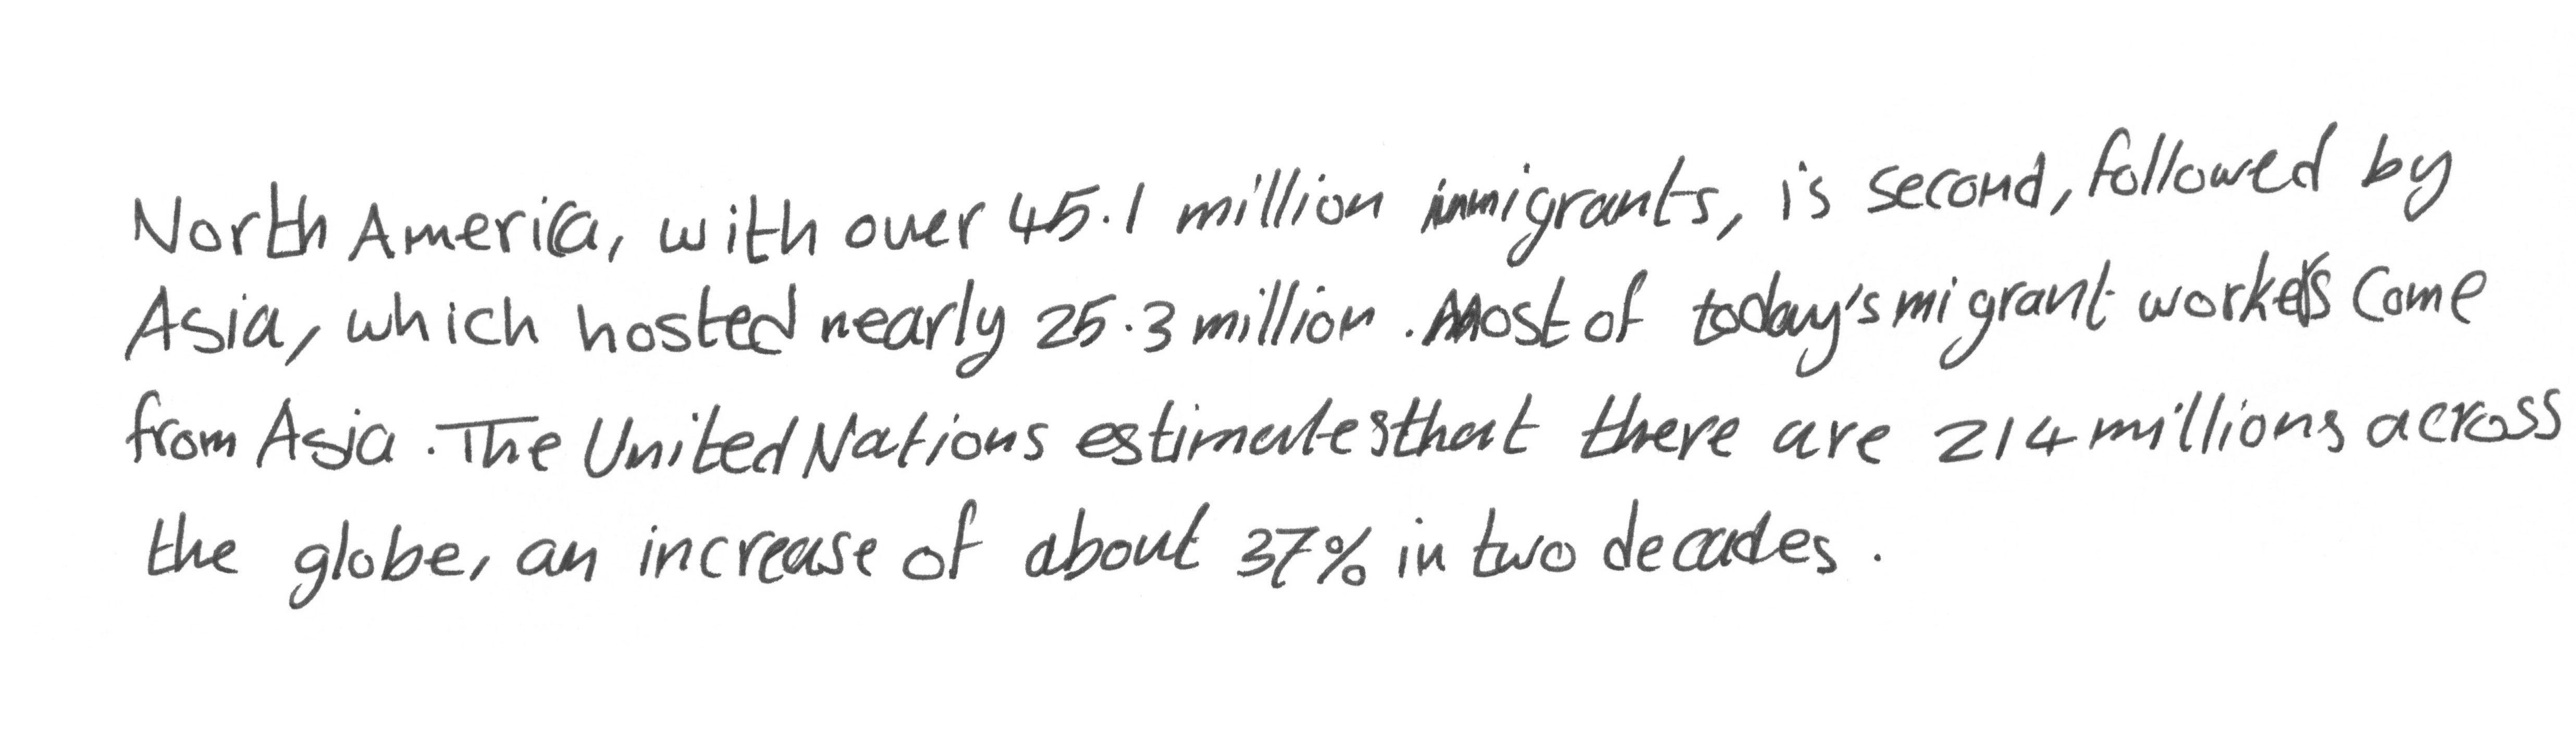 North America, with over 45.1 million immigrants, is second, followed by
Asia, which hosted nearly 25.3 million. Most of today's migrant workers come
from Asia. The United Nations estimates that there are 214 millions across
the globe, an increase of about 37% in two decades.